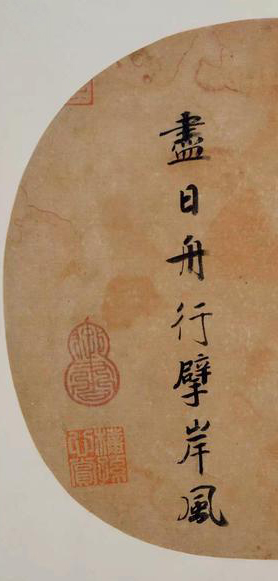 盡日舟行擘岸風